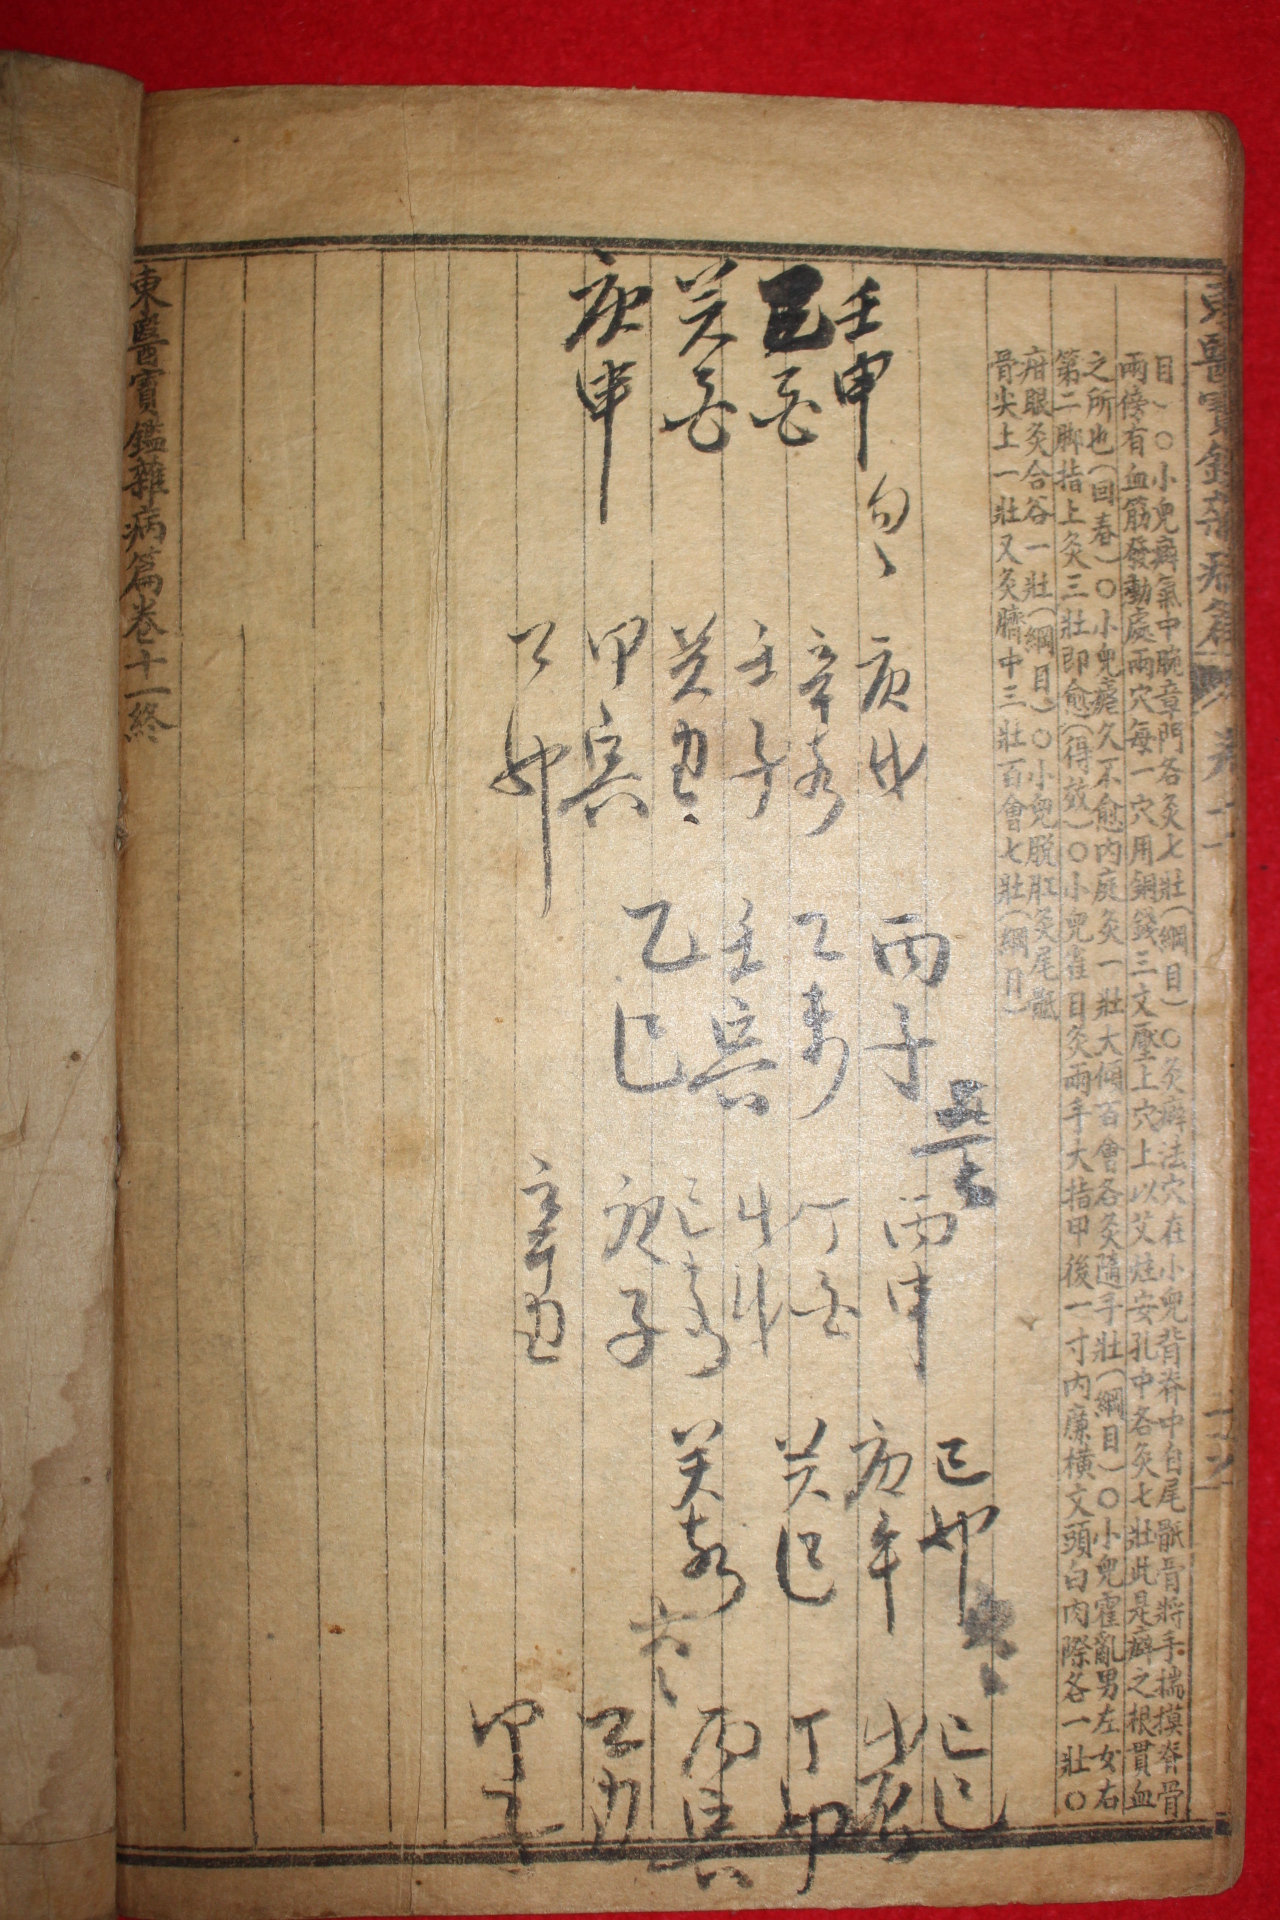 目)○小兒癖氣中脘章門各灸七壯(綱目)○灸癖法穴在小兒背脊中自尾骶骨將手揣摸脊骨
兩傍有血筋發動處兩穴每一穴用銅錢三文壓上穴上以艾炷安孔中各灸七壯此是癖之根貫血
之所也(回春)○小兒瘧久不愈內庭灸一壯大傾百會各灸隨手壯(綱目)○小兒霍亂男左女右
第二脚指上灸三壯卽愈(得效)○小兒雀目灸兩手大指甲後一寸內廉橫文頭白肉際各一壯○
疳眼灸合谷一壯(綱目)○小兒脫肛灸尾骶
骨尖上一壯又灸臍中三壯百會七壯(綱目)
壬申
庚申
庚戌
辛亥
壬子
癸丑
甲寅
丙子
乙巳
丙申
丁酉
己亥
庚子
辛丑
己卯
庚午
癸巳
癸亥
己巳
丁卯
丙寅
東醫寶鑑雜病篇卷十一終